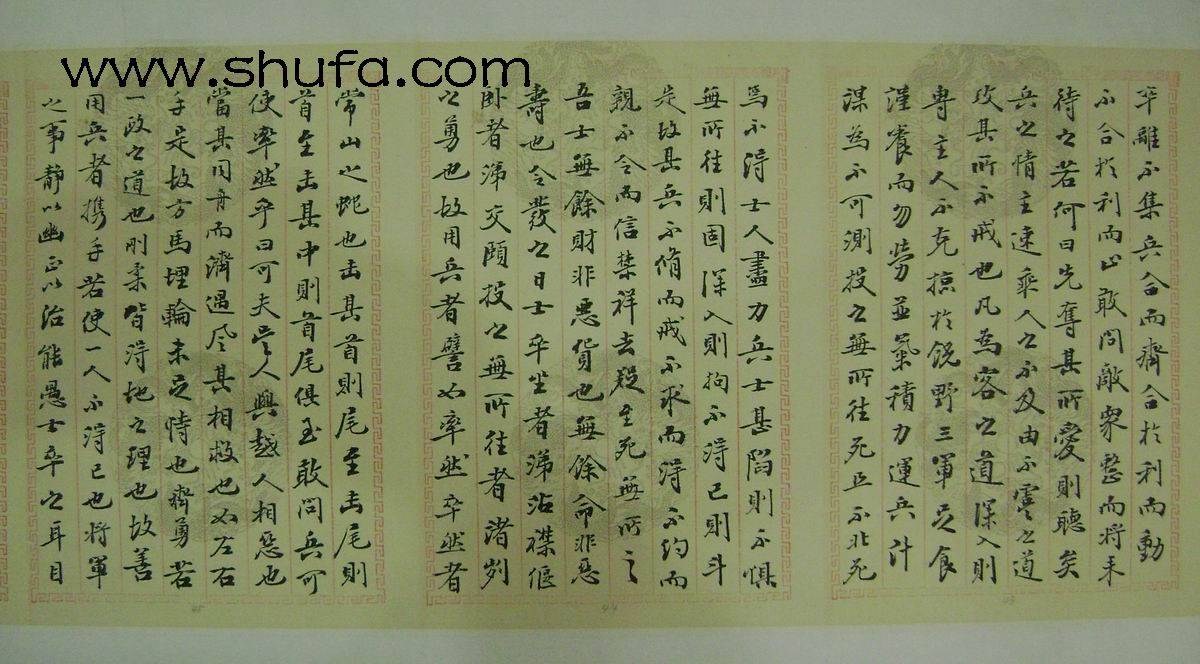 www.shufa.com
卒離不集兵合而齊合於利而動
不合於利而止敢問敵衆整而将来
待之若何曰先奪其所愛則聽矣
兵之情主速乘人之不及由不虞之道
攻其所不戒也凡為客之道深入則
專主人不克掠於饒野三軍足食
謹養而勿勞並氣積力運兵計
謀為不可測投之無所往死且不北死
焉不得士人盡力兵士甚陷則不懼
無所往則固深入則拘不得已則斗
是故其兵不脩而戒不求而得不約而
親不令而信禁祥去疑至死無所之
吾士無餘財非惡貨也無餘命非惡
壽也令發之日士卒坐者涕沾襟偃
卧者涕交頤投之無所往者諸劌
之勇也故用兵者譬如率然率然者
常山之蛇也击其首則尾至击尾則
首至击其中則首尾俱至敢問兵可
使率然乎曰可夫吳人與越人相惡也
當其同舟而濟遇風其相救也如左右
手是故方馬埋輪未足恃也齊勇若
一政之道也剛柔皆得地之理也故善
用兵者携手若使一人不得已也将軍
之事靜以幽正以治能愚士卒之耳目